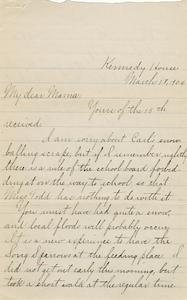 Kennedy House
March 18, 190
My dear Mama
Yours of the 15th
received.
I am sorry about Carl's snow
balling scrape, but if I remember rightly
there is a rule of the school board
on the way to school so that
Miss Todd has nothing to do with it.
You must have had quite a snow,
and local floods will probably occur
It is a new experience to have the
Song Sparrows at the feeding place. I
did not get out early this morning, but
took a short walk at the regular time